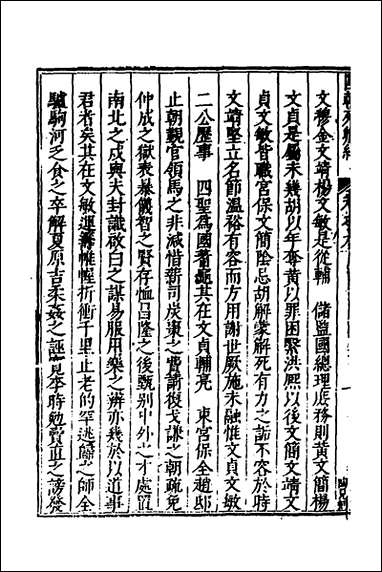 文穆金文靖楊文敏是從輔　儲監國總理庶務則黃文簡楊
文貞是屬未幾胡以年奪黃以罪困繫洪熙以後文簡文靖文
貞文敏皆職宮保文簡險忌胡解棠解死有力之詬不容於時
文靖堅立名節溫裕有容而方用謝世厥施未融惟文貞文敏
二公歷事　四聖為國蓍龜其在文貞輔亮　東宮保全趙邸
止朝覲官領馬之非減惜薪司炭棗之費諭復戈謙之朝疏免
仲成之獄表暴儀智之賢存恤呂隆之後甄別中外之才處置
南北之戍與夫封識啟白之謀易服用樂之辨亦幾於以道事
君者矣其在文敏運籌帷幄折衝千里止老的罕逃歸之師全
驢駒河乏食之卒解夏原吉柔姦之誣寬李時勉賣直之謗發